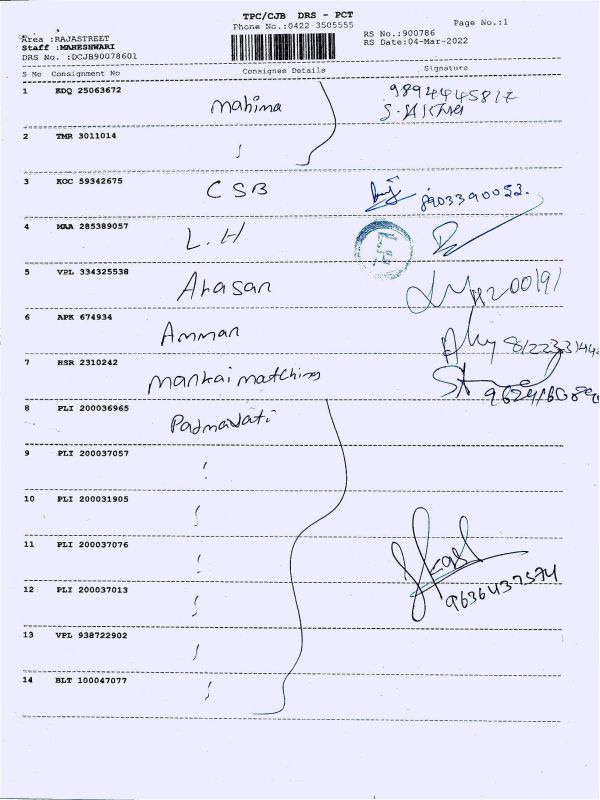 TPC/CJB DRS - PCT
Phone No.:0422-3505555
Page No.:1
Area :RAJASTREET
RS No.:900786
Staff :MAHESHWARI
RS Date:04-Mar-2022
DRS No. :DCJB90078601
S No Consignment No Consignee Details Signature
1 EDQ 25063672 Mahima 9894445817
2 TMR 3011014
3 KOC 59342675 CSB 8903390052.
4 MAA 285389057 L.H
5 VPL 334325538 Arasan
6 APK 674934 Amman
7 HSR 2310242 Mankai matching
8 PLI 200036965 Padmavati
9 PLI 200037057
10 PLI 200031905
11 PLI 200037076
12 PLI 200037013 9636437574
13 VPL 938722902
14 BLT 100047077